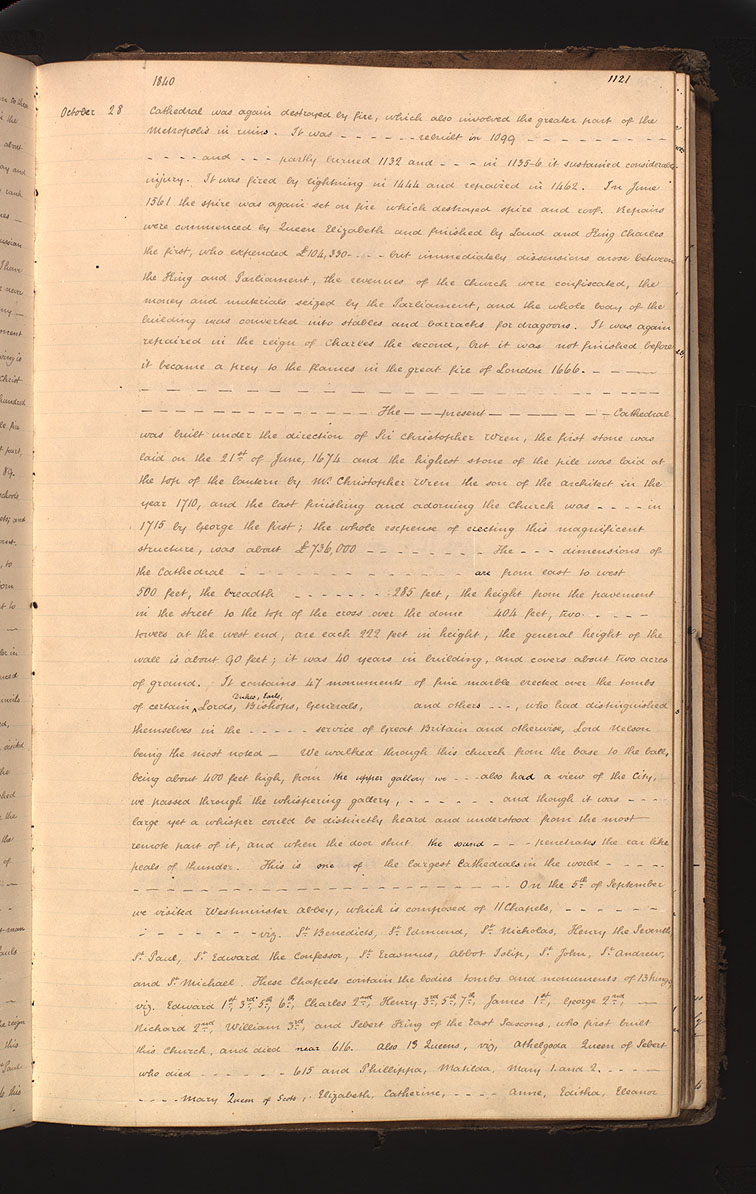 1840 1121
October 28 Cathedral was again destroyed by fire, which also involved the greater part of the
Metropolis in ruins. It was - - - - - - rebuilt in 1099 - - - - - - - - -
- - - - and - - - partly burned 1132 and - - - in 1135-6 it sustained considerable
injury. It was fired by lightning in 1444 and repaired in 1462. In June
1561 the spire was again set on fire which destroyed spire and roof. Repairs
were commenced by Queen Elizabeth and finished by Laud and King Charles
the first, who expended £104,330 - - - - but immediately dissensions arose between
the King and Parliament, the revenues of the Church were confiscated, the
money and materials seized by the Parliament, and the whole body of the
building was converted into stables and barracks for dragoons. It was again
repaired in the reign of Charles the second, but it was not finished before
it became a prey to the flames in the great fire of London 1666. - - - -
- - - - - - - - - - - - - - - - - - - - - - - - - - - - -
- - - - - - - - - - - - - The - - present - - - - - - - Cathedral
was built under the direction of Sir Christopher Wren, the first stone was
laid on the 21st of June, 1674 and the highest stone of the pile was laid at
the top of the lantern by Mr Christopher Wren the son of the architect in the
year 1710, and the last finishing and adorning the Church was - - - - in
1715 by George the first; the whole expense of erecting this magnificent
structure, was about £736,000 - - - - - - - - The - - - dimensions of
the Cathedral - - - - - - - - - - - - - are from east to west
500 feet, the breadth - - - - - - - 285 feet, the height from the pavement
in the street to the top of the cross over the dome 404 feet, two - - - -
towers at the west end, are each 222 feet in height, the general height of the
wall is about 90 feet; it was 40 years in building, and covers about two acres
of ground. It contains 47 monuments of fine marble erected over the tombs
Dukes, Earls,
of certain ^Lords, Bishops, Generals, and others - - -, who had distinguished
themselves in the - - - - - service of Great Britain and otherwise, Lord Nelson
being the most noted - We walked through this church from the base to the ball,
being about 400 feet high, from the upper gallery we - - - also had a view of the City,
we passed through the whispering gallery, - - - - - - and though it was - - -
large yet a whisper could be distinctly heard and understood from the most
remote part of it, and when the door shut the sound - - - penetrates the ear like
peals of thunder. This is one of the largest Cathedrals in the world - - - - -
- - - - - - - - - - - - - - - - - - - - On the 5th of September
we visited Westminster Abbey, which is composed of 11 Chapels, - - - - - -
- - - - - - - viz. St Benedicts, St Edmund, St Nicholas, Henry the Seventh
St Paul, St Edward the Confessor, St Erasmus, Abbot Islip, St John, St Andrew,
and St Michael. These Chapels contain the bodies tombs and monuments of 13 Kings
viz. Edward 1st, 3rd, 5th, 6th, Charles 2nd, Henry 3rd, 5th, 7th, James 1st, George 2nd, -
Richard 2nd, William 3rd, and Sebert King of the East Saxons, who first built
this Church, and died near 616. Also 13 Queens, viz, Athelgoda Queen of Sebert
who died - - - - - - 615 and Phillippa, Matilda, Mary 1. and 2. - - - -
- - - - Mary Queen of Scots, Elizabeth, Catherine, - - - - Anne, Editha, Eleanor